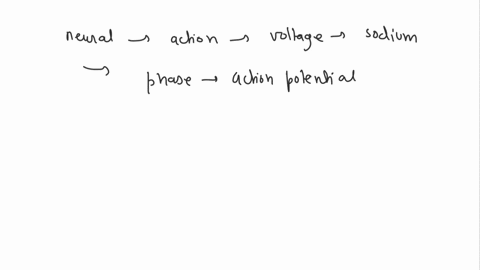 neural → action → voltage → sodium
→ phase → action potential